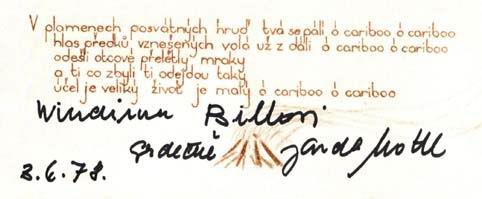 V plamenech posvátných hruď tvá se pálí ó cariboo ó cariboo
hlas předků vznešených volá už z dáli ó cariboo ó cariboo
odešli otcové přelétly mraky
a ti co zbyli ti odejdou taky
účel je veliký život je malý ó cariboo ó cariboo
srdečně
3.6.78.